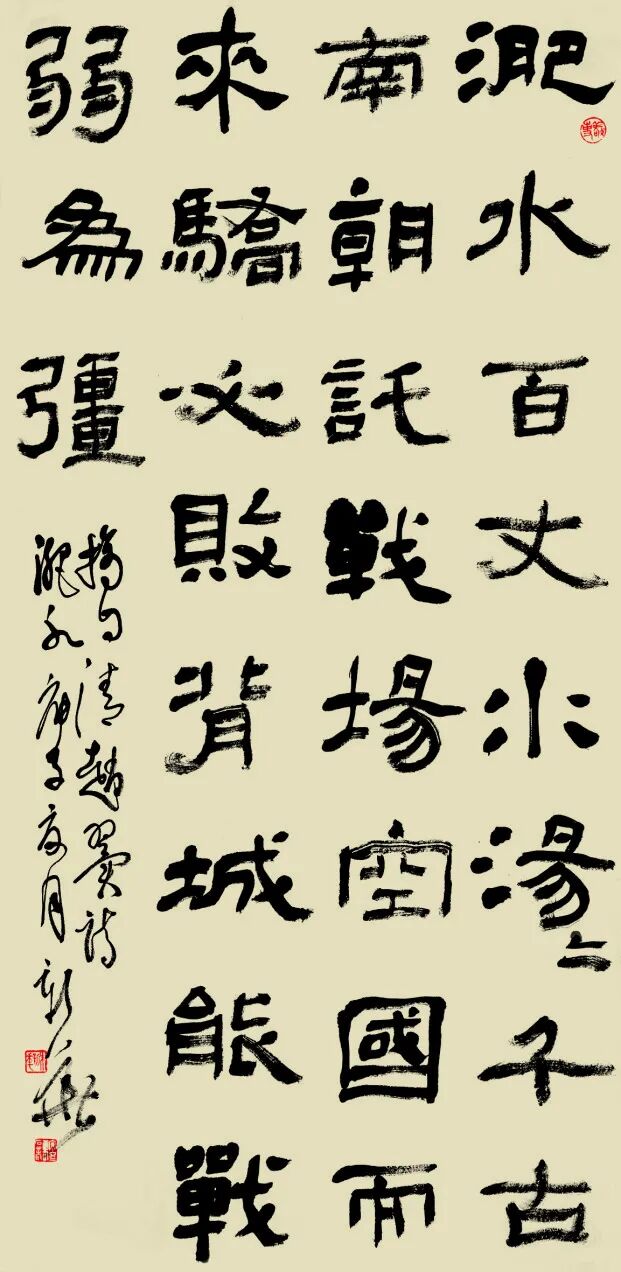 淝水百丈小湯〻千古
南朝託戰場空國而
來驕必敗背城能戰
弱為彊
摘句清趙翼詩
淝水庚子夏月